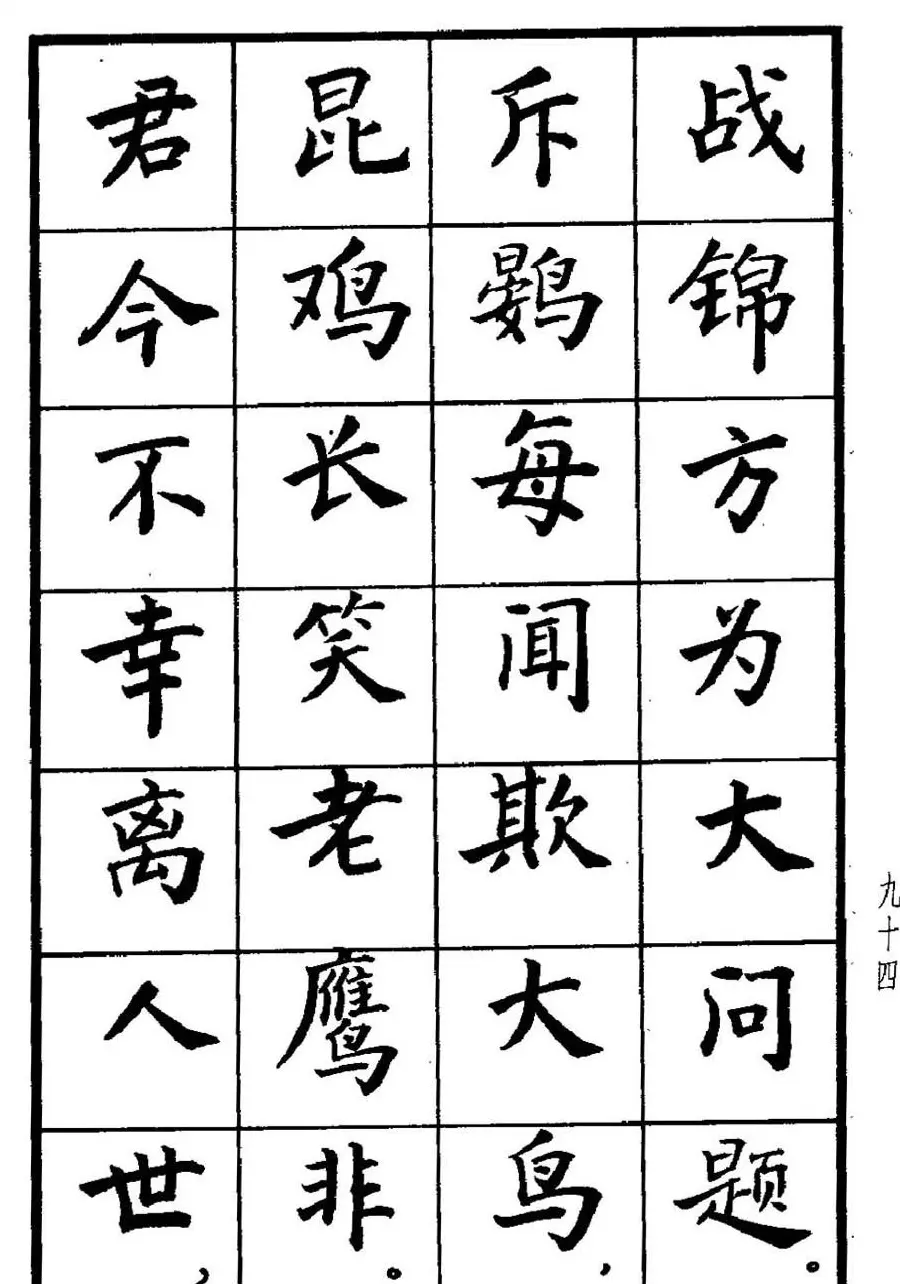 战锦方为大问题。
斥鷃每闻欺大鸟，
昆鸡长笑老鹰非。
君今不幸离人世，
九十四